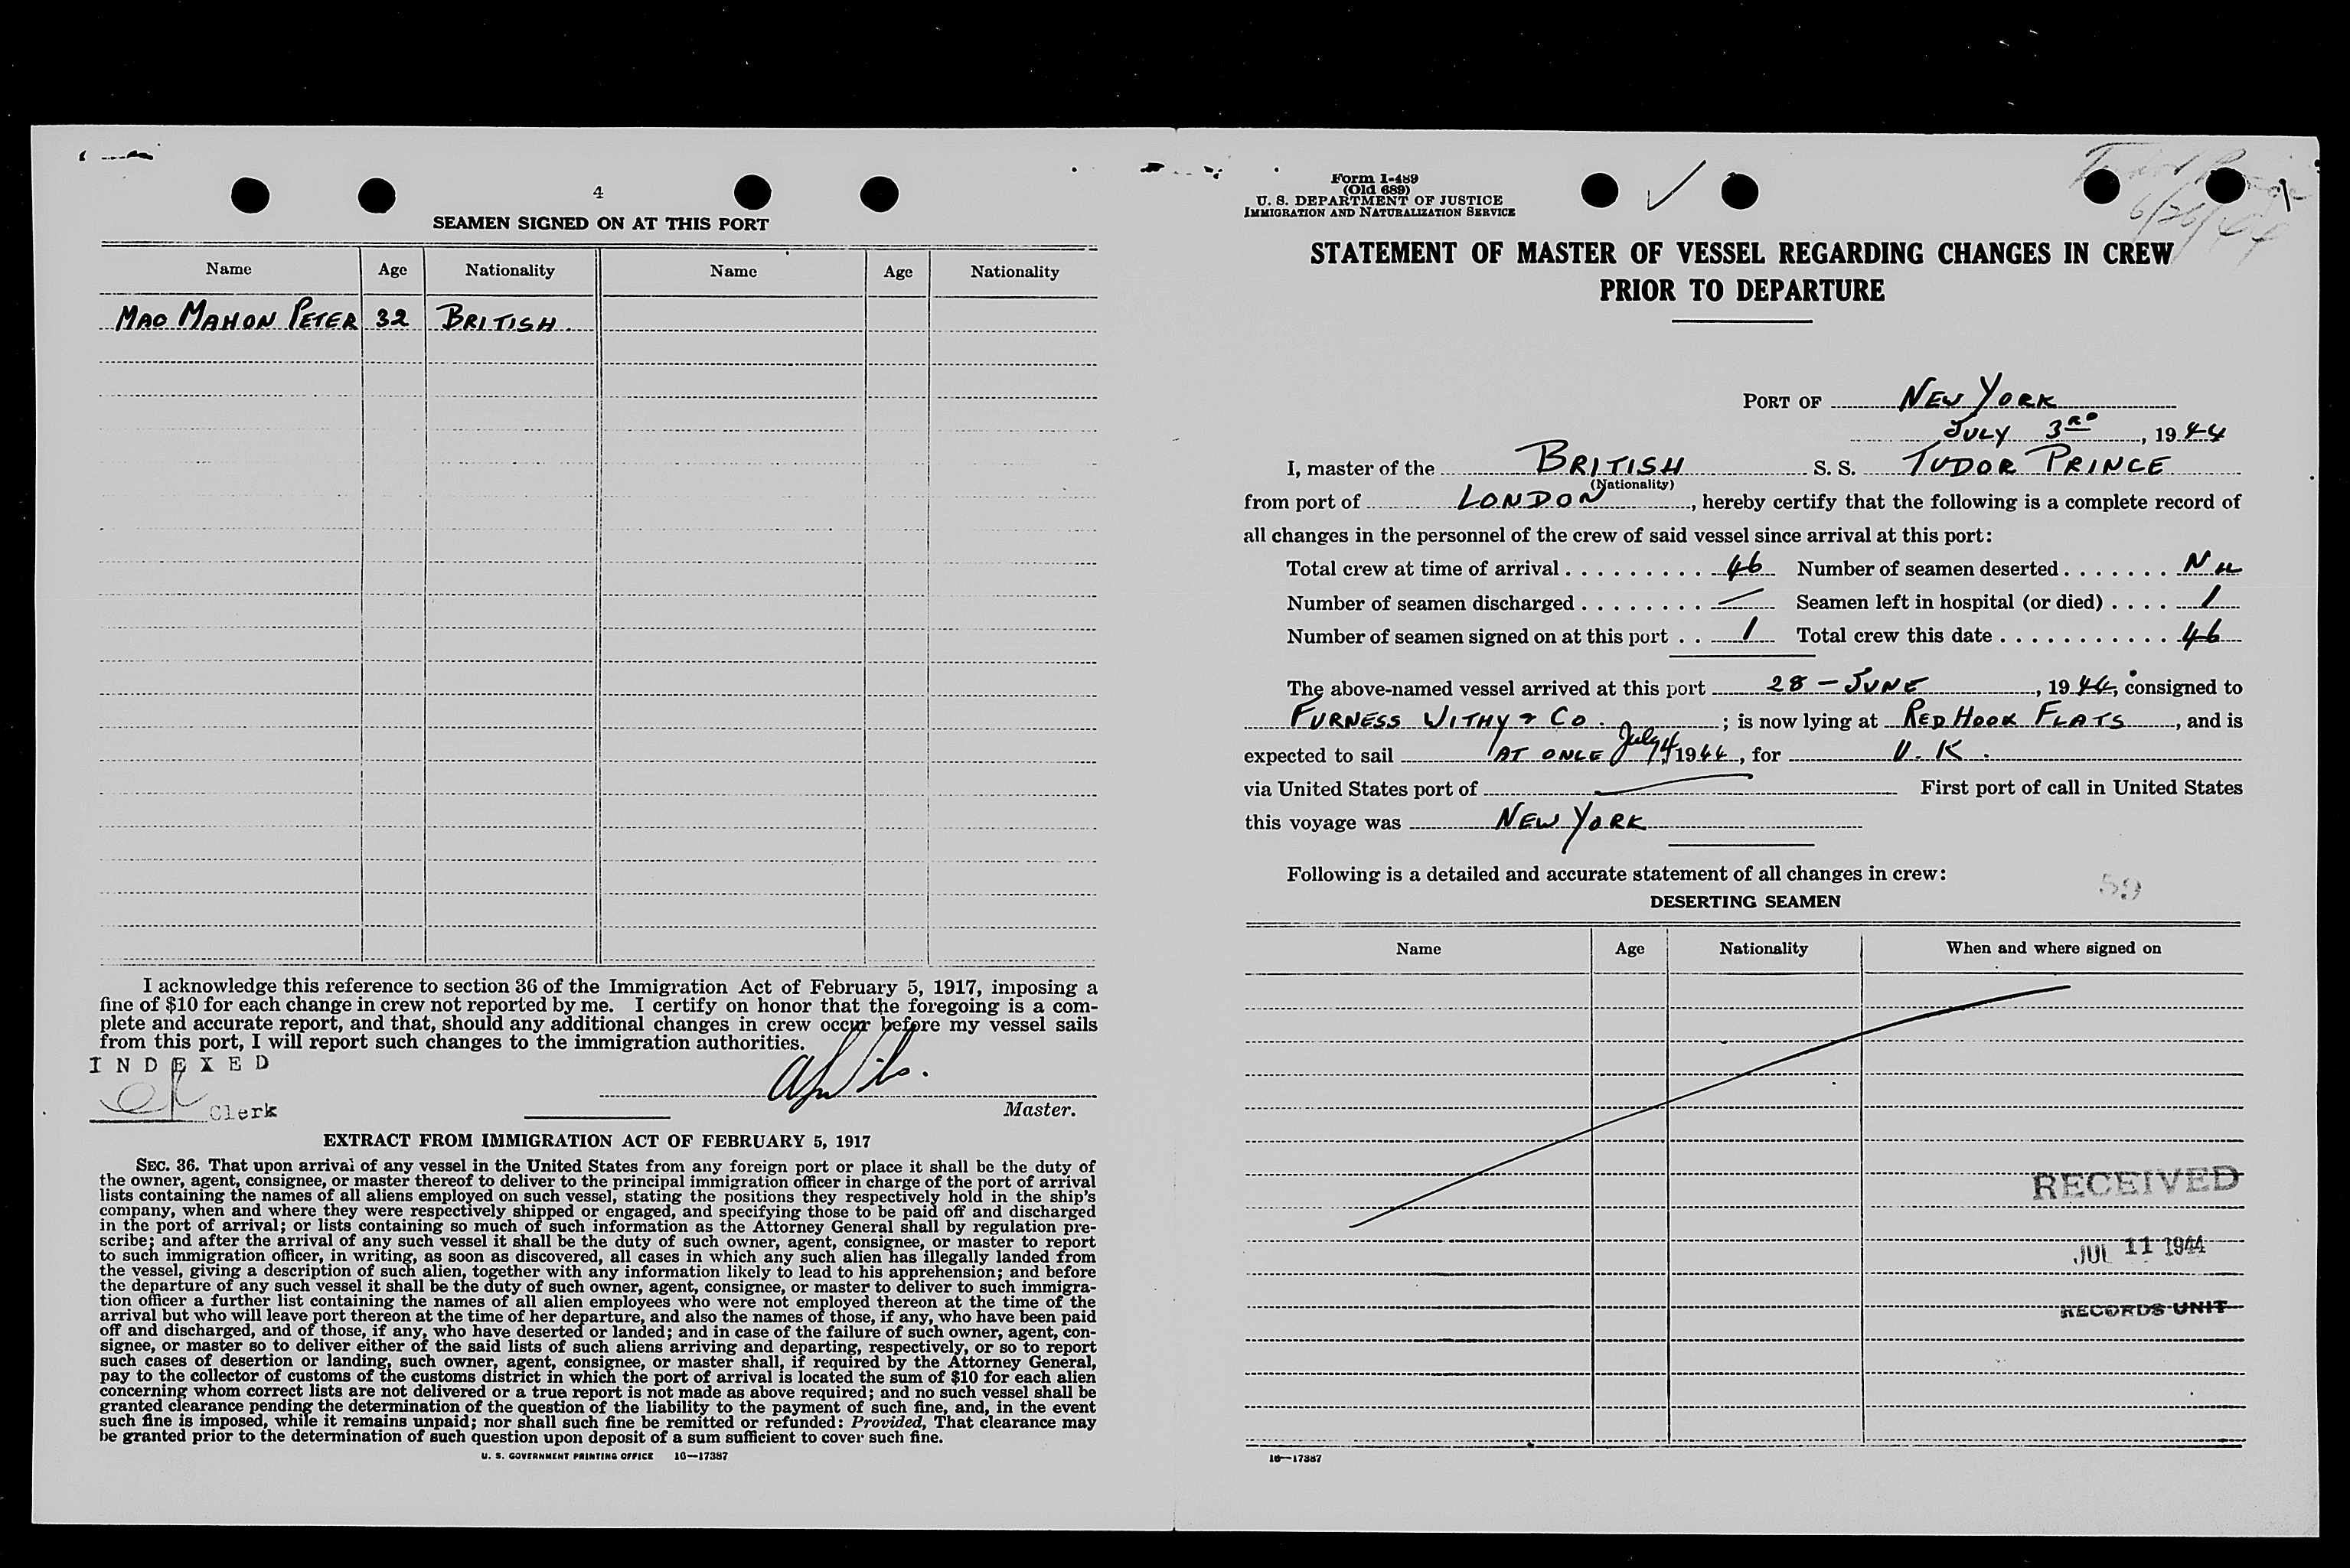 4
SEAMEN SIGNED ON AT THIS PORT
Name Age Nationality Name Age Nationality
MAC MAHON PETER 32 BRITISH.
I acknowledge this reference to section 36 of the Immigration Act of February 5, 1917, imposing a
fine of $10 for each change in crew not reported by me. I certify on honor that the foregoing is a com-
plete and accurate report, and that, should any additional changes in crew occur before my vessel sails
from this port, I will report such changes to the immigration authorities.
INDEXED
Clerk
Master.
EXTRACT FROM IMMIGRATION ACT OF FEBRUARY 5, 1917
SEC. 36. That upon arrival of any vessel in the United States from any foreign port or place it shall be the duty of
the owner, agent, consignee, or master thereof to deliver to the principal immigration officer in charge of the port of arrival
lists containing the names of all aliens employed on such vessel, stating the positions they respectively hold in the ship's
company, when and where they were respectively shipped or engaged, and specifying those to be paid off and discharged
in the port of arrival; or lists containing so much of such information as the Attorney General shall by regulation pre-
scribe; and after the arrival of any such vessel it shall be the duty of such owner, agent, consignee, or master to report
to such immigration officer, in writing, as soon as discovered, all cases in which any such alien has illegally landed from
the vessel, giving a description of such alien, together with any information likely to lead to his apprehension; and before
the departure of any such vessel it shall be the duty of such owner, agent, consignee, or master to deliver to such immigra-
tion officer a further list containing the names of all alien employees who were not employed thereon at the time of the
arrival but who will leave port thereon at the time of her departure, and also the names of those, if any, who have been paid
off and discharged, and of those, if any, who have deserted or landed; and in case of the failure of such owner, agent, con-
signee, or master so to deliver either of the said lists of such aliens arriving and departing, respectively, or so to report
such cases of desertion or landing, such owner, agent, consignee, or master shall, if required by the Attorney General,
pay to the collector of customs of the customs district in which the port of arrival is located the sum of $10 for each alien
concerning whom correct lists are not delivered or a true report is not made as above required; and no such vessel shall be
granted clearance pending the determination of the question of the liability to the payment of such fine, and, in the event
such fine is imposed, while it remains unpaid; nor shall such fine be remitted or refunded: Provided, That clearance may
be granted prior to the determination of such question upon deposit of a sum sufficient to cover such fine.
U. S. GOVERNMENT PRINTING OFFICE 16—17387
Form I-489
(Old 689)
U. S. DEPARTMENT OF JUSTICE
IMMIGRATION AND NATURALIZATION SERVICE
STATEMENT OF MASTER OF VESSEL REGARDING CHANGES IN CREW
PRIOR TO DEPARTURE
PORT OF NEW YORK
JULY 3RD, 1944
I, master of the BRITISH S. S. TUDOR PRINCE
(Nationality)
from port of LONDON, hereby certify that the following is a complete record of
all changes in the personnel of the crew of said vessel since arrival at this port:
Total crew at time of arrival . . . . . . . . . . 46 Number of seamen deserted . . . . . . .
Number of seamen discharged . . . . . . . . — Seamen left in hospital (or died) . . . . 1
Number of seamen signed on at this port . . 1 Total crew this date . . . . . . . . . . . 46
The above-named vessel arrived at this port 28 - JUNE, 1944, consigned to
FURNESS WITHY & CO.; is now lying at RED HOOK FLATS, and is
expected to sail AT ONCE July 4, 1944, for U. K.
via United States port of — First port of call in United States
this voyage was NEW YORK
Following is a detailed and accurate statement of all changes in crew:
59
DESERTING SEAMEN
Name Age Nationality When and where signed on
RECEIVED
JUL 11 1944
RECORDS UNIT
16—17387